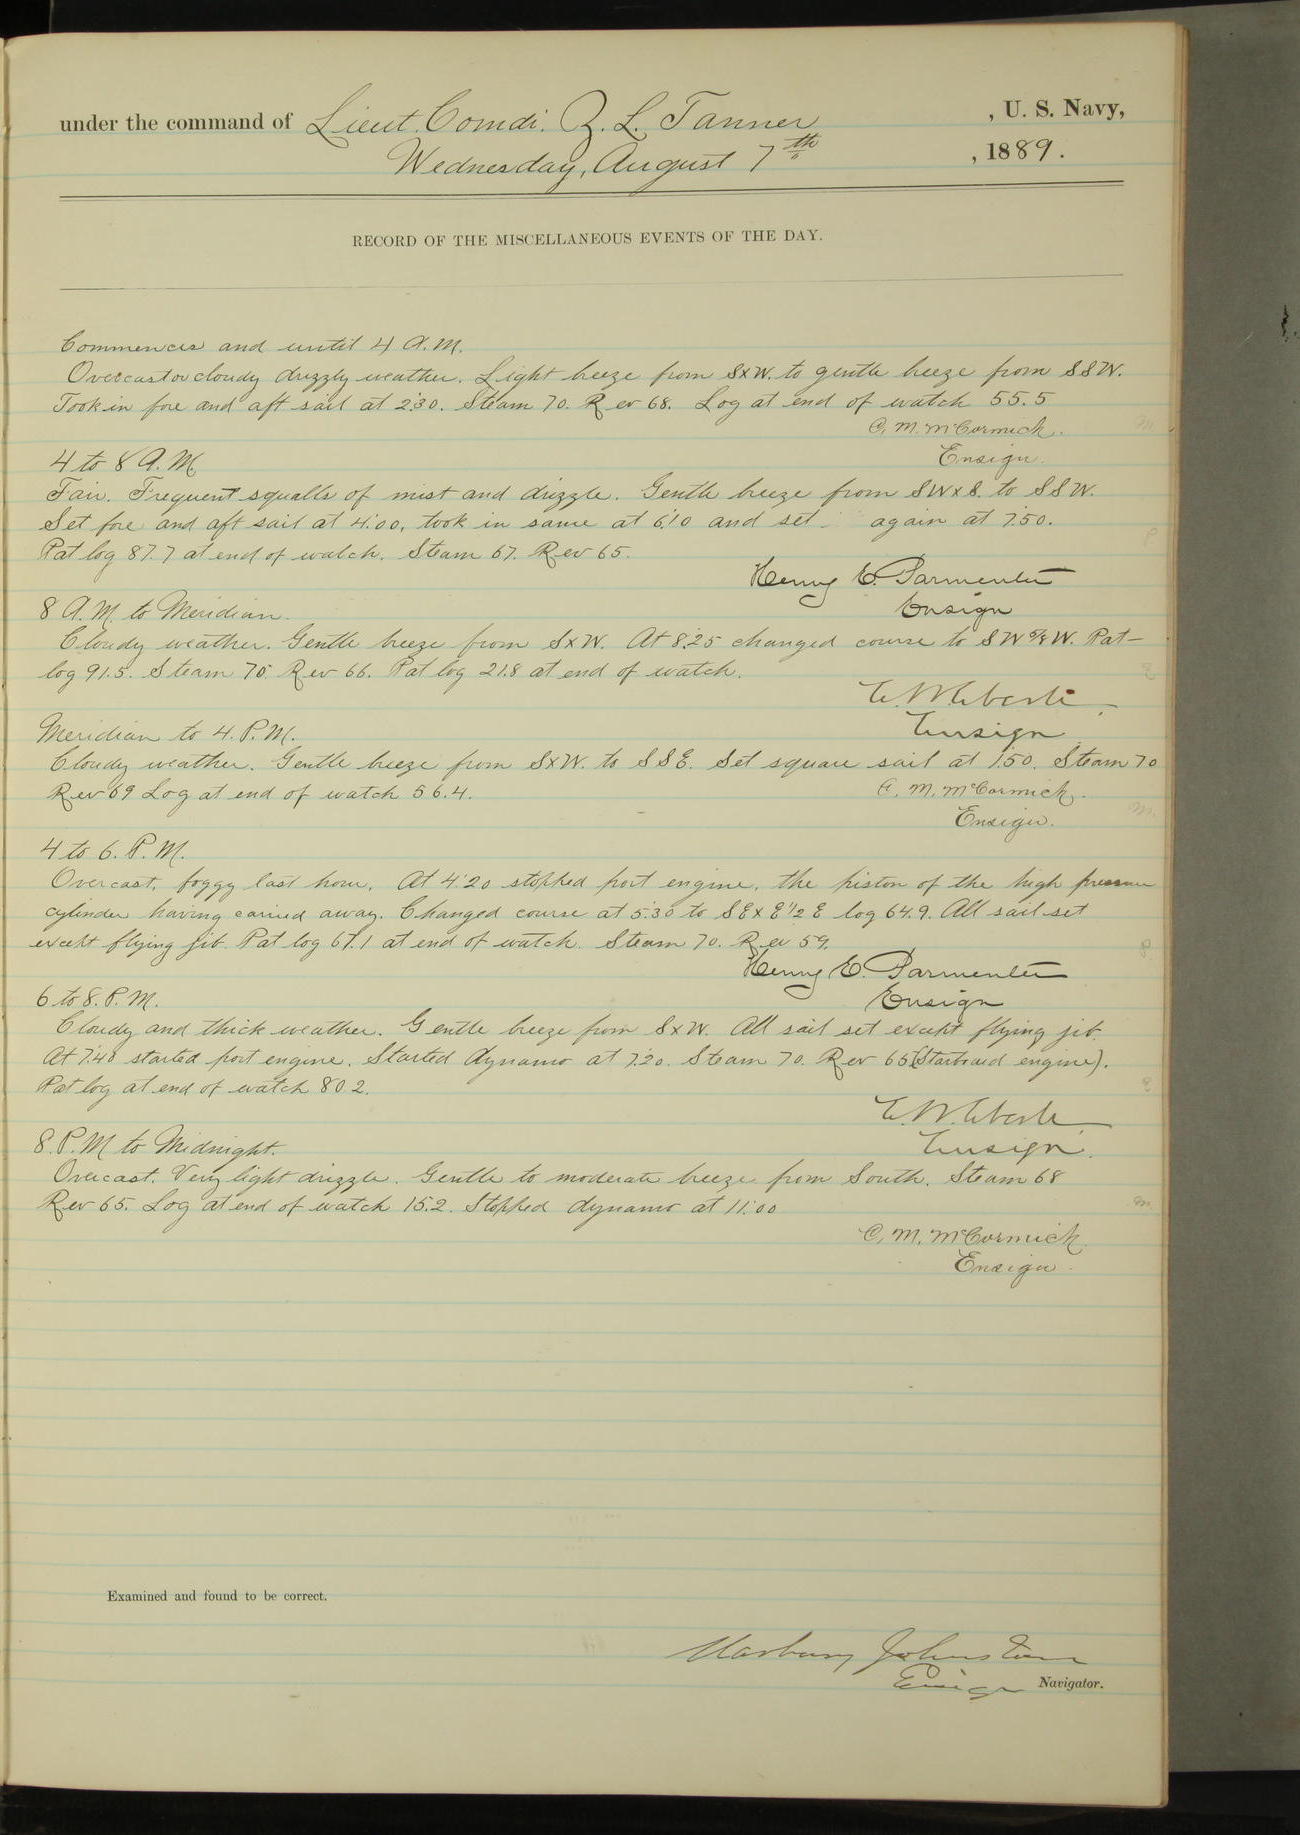 under the command of Lieut. Comdr. Z. L. Tanner, U. S. Navy,
Wednesday, August 7th, 1889.
RECORD OF THE MISCELLANEOUS EVENTS OF THE DAY.
Commences and until 4 A.M.
Overcast or cloudy drizzly weather. Light breeze from SxW. to gentle breeze from SSW.
Took in fore and aft sail at 2:30. Steam 70. Rev 68. Log at end of watch 55.5
C. M. McCormick.
Ensign.
4 to 8 A.M.
Fair. Frequent squalls of mist and drizzle. Gentle breeze from SWxS. to SSW.
Set fore and aft sail at 4:00, took in same at 6:10 and set again at 7:50.
Pat log 87.7 at end of watch. Steam 67. Rev 65.
Henry E. Parmenter
Ensign
8 A.M. to Meridian.
Cloudy weather. Gentle breeze from SxW. At 8:25 changed course to SW W. Pat-
log 91.5. Steam 70. Rev 66. Pat log 21.8 at end of watch.
E. W. Eberle.
Ensign
Meridian to 4. P.M.
Cloudy weather. Gentle breeze from SxW. to SSE. Set square sail at 1:50. Steam 70
Rev 69 Log at end of watch 56.4.
C. M. McCormick.
Ensign.
4 to 6. P.M.
Overcast, foggy last hour. At 4:20 stopped port engine, the piston of the high pressure
cylinder having carried away. Changed course at 5:30 to SExE1/2E log 64.9. All sail set
except flying jib. Pat log 67.1 at end of watch. Steam 70. Rev 59.
Henry E. Parmenter
Ensign
6 to 8. P.M.
Cloudy and thick weather. Gentle breeze from SxW. All sail set except flying jib.
At 7:40 started port engine. Started dynamo at 7:20. Steam 70. Rev 65 (Starboard engine).
Pat log at end of watch 80.2.
E. W. Eberle
Ensign.
8. P.M to Midnight.
Overcast. Very light drizzle. Gentle to moderate breeze from South. Steam 68
Rev 65. Log at end of watch 15.2. Stopped dynamo at 11:00
C. M. McCormick
Ensign.
Examined and found to be correct.
Marbury Johnston
Ensign Navigator.